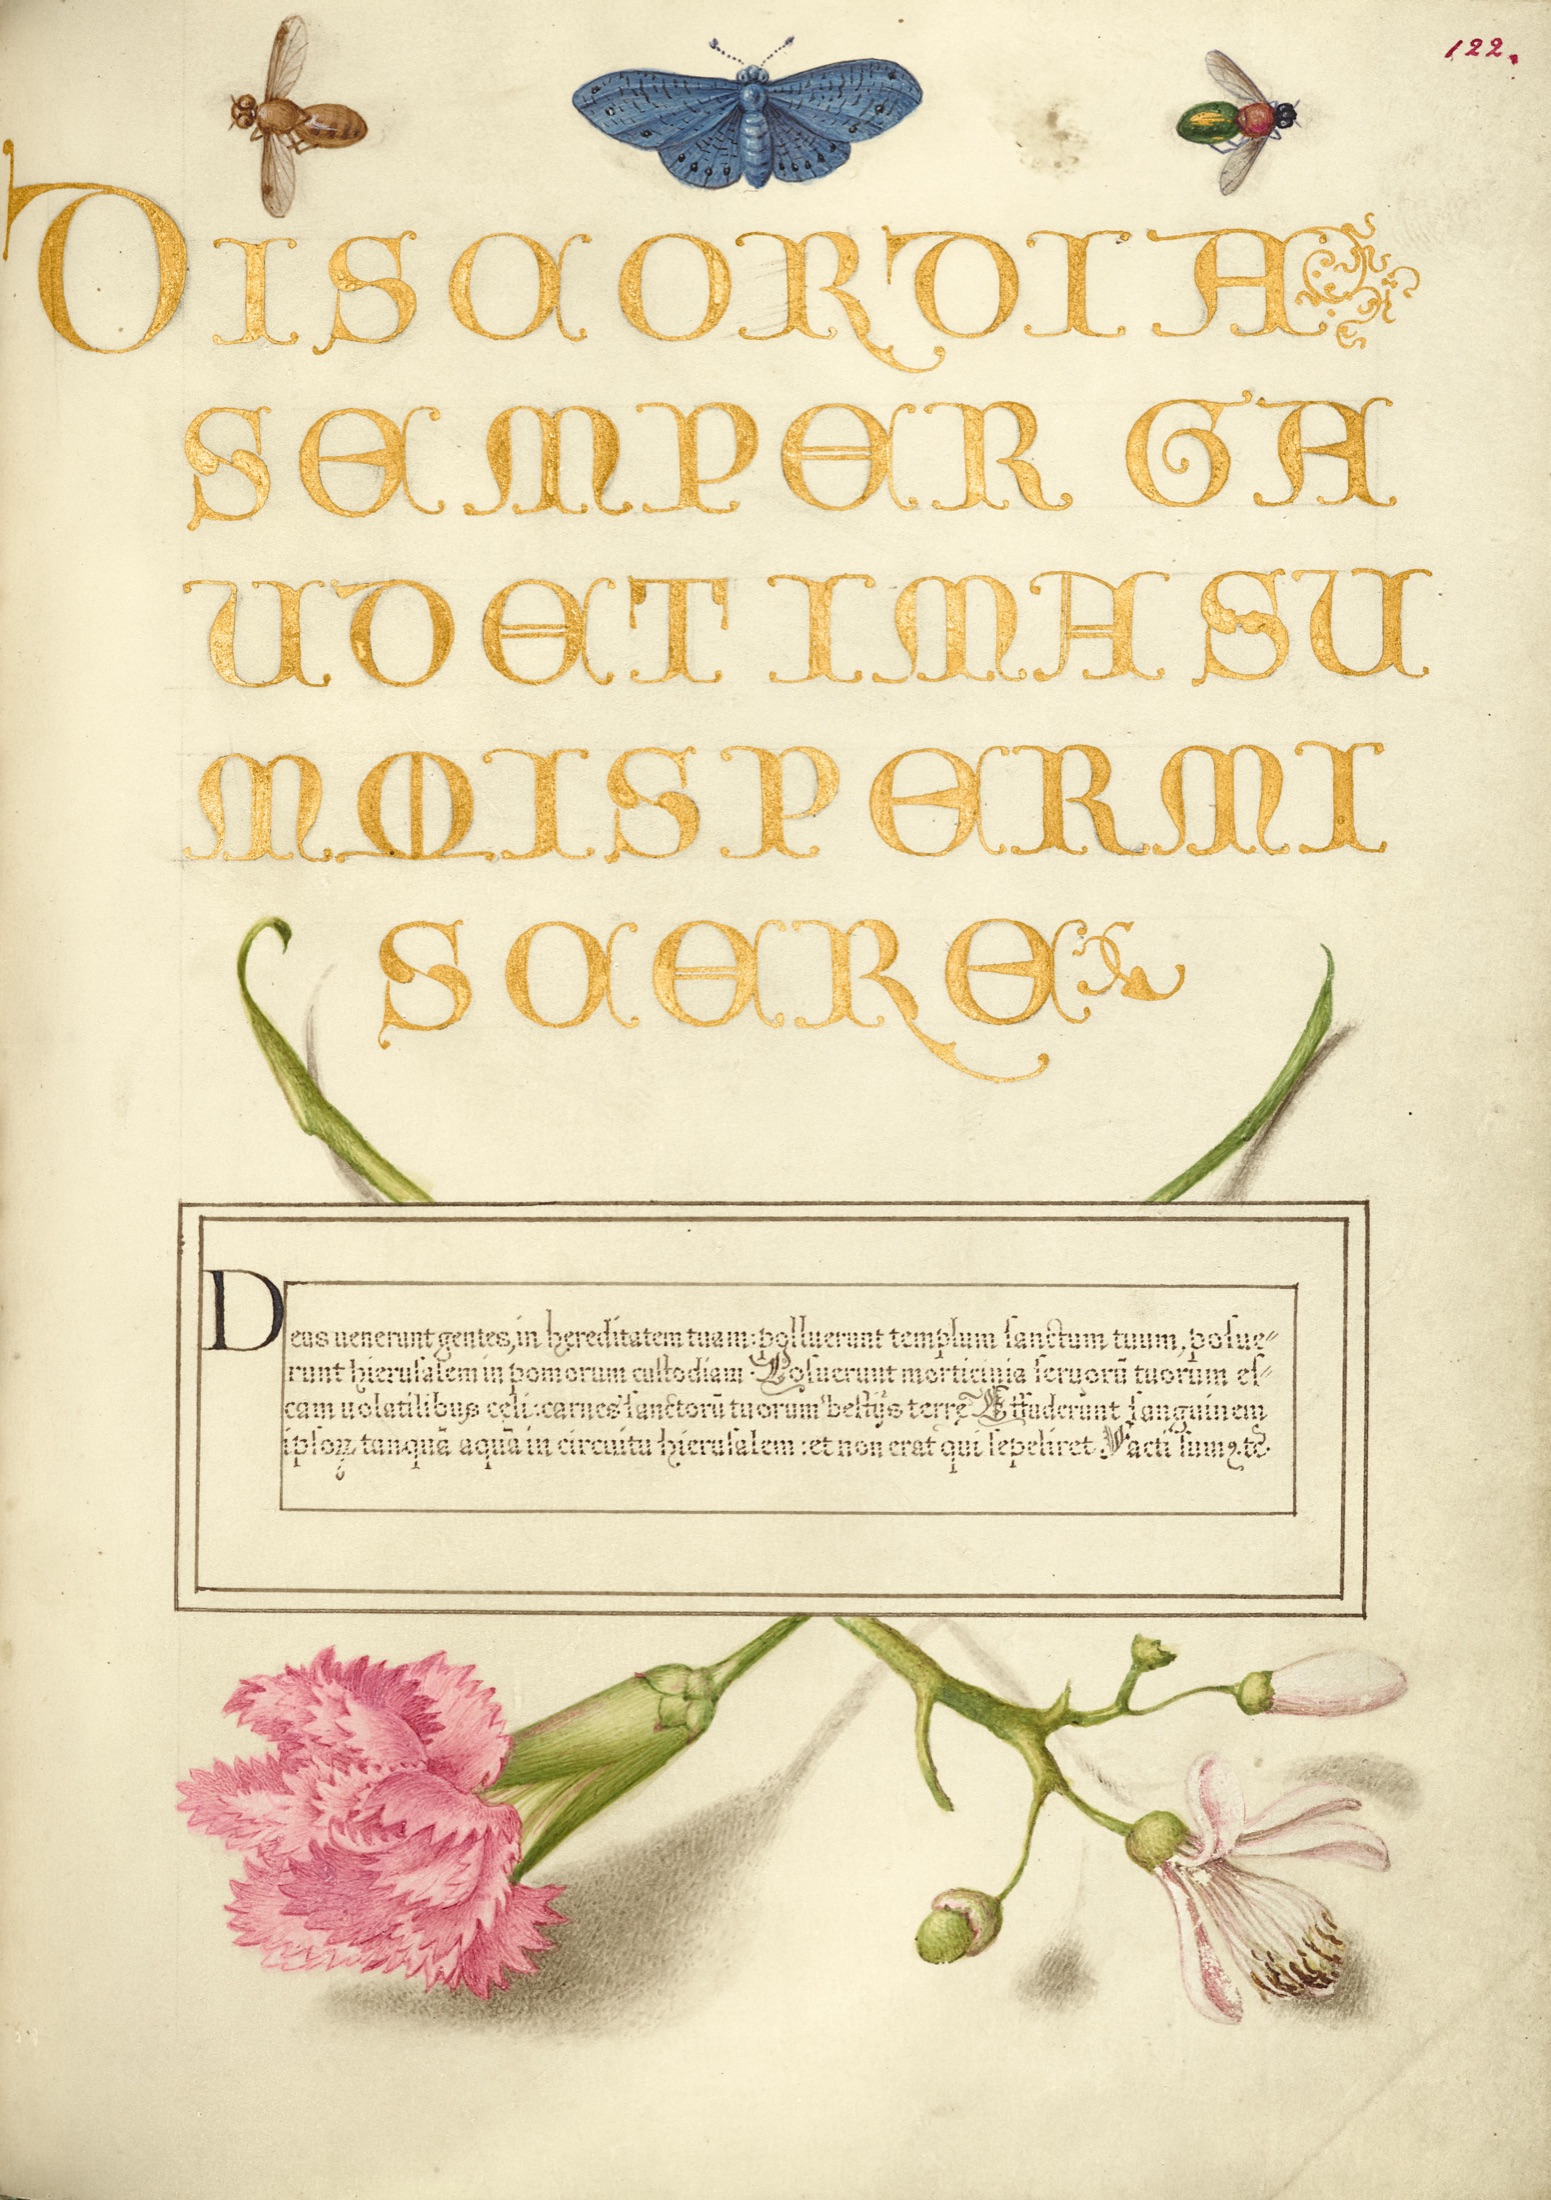 122.
DISCORDIA
SEMPER GA
UDET IMA SU
MMIS PERMI
SCERE
Deus uenerunt gentes, in hereditatem tuam: polluerunt templum sanctum tuum, posue=
runt hierusalem in pomorum custodiam. Posuerunt morticinia seruorū tuorum es=
cam uolatilibus celi: carnes sanctorū tuorum bestijs terrę. Effuderunt sanguinem
ipsoꝝ tanquā aquā in circuitu hierusalem: et non erat qui sepeliret. Facti sumꝰ. tc̄.